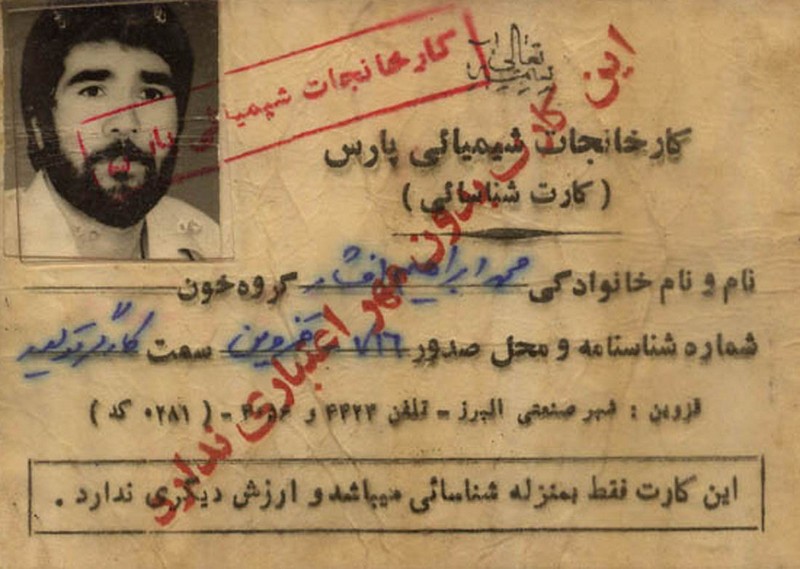 بسمه تعالی
کارخانجات شیمیائی پارس
کارخانجات شیمیائی پارس
( کارت شناسائی )
نام و نام خانوادگی محمد ابراهیم افشار گروه خون
شماره شناسنامه و محل صدور قزوین سمت کارگر تولید
قزوین : شهر صنعتی البرز - تلفن ۴۴۲۴ و - ( ۰۲۸۱ کد )
این کارت فقط بمنزله شناسائی میباشد و ارزش دیگری ندارد .
این کارت بدون مهر اعتباری ندارد